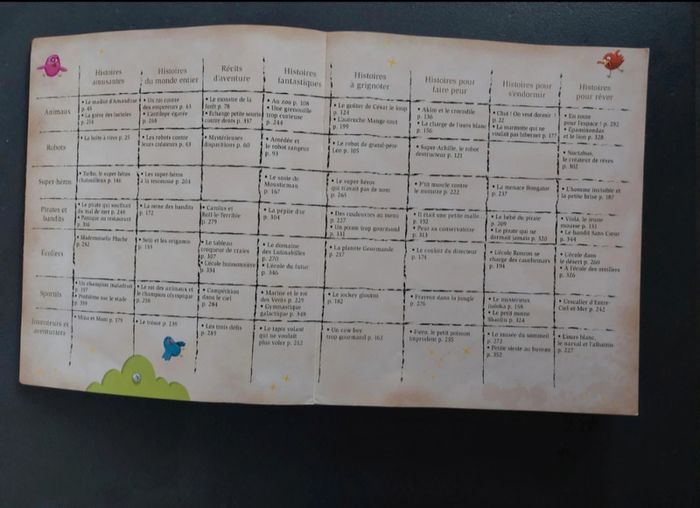 Histoires
amusantes
Histoires
du monde entier
Récits
d'aventure
Histoires
fantastiques
Histoires
à grignoter
Histoires pour
faire peur
Histoires pour
s'endormir
Histoires
pour rêver
Animaux
• Le maillot d'Amandine
p. 45
• La guerre des lucioles
p. 214
• Un roi contre
des empereurs p. 63
• L'antilope égarée
p. 268
• Le monstre de la
forêt p. 78
• Échange petite souris
contre dents p. 337
• Au zoo p. 108
• Une grenouille
trop curieuse
p. 244
• Le goûter de César le loup
p. 124
• L'autruche Mange-tout
p. 199
• Akiro et le crocodile
p. 136
• La charge de l'ours blanc
p. 156
• Chut ! On veut dormir !
p. 22
• La marmotte qui ne
voulait pas hiberner p. 177
• En route
pour l'espace ! p. 292
• Épaminondas
et le lion p. 328
Robots
• La boîte à rires p. 25
• Les robots contre
leurs créateurs p. 43
• Mystérieuses
disparitions p. 60
• Amédée et
le robot rangeur
p. 93
• Le robot de grand-père
Léo p. 105
• Super-Achille, le robot
destructeur p. 121
• Noctabus,
le créateur de rêves
p. 302
Super-héros
• Turbo, le super-héros
chatouilleux p. 146
• Les super-héros
à la rescousse p. 204
• Le soule de
p. 167
• Le super-héros
qui n'avait pas de nom
p. 265
• P'tit muscle contre
le monstre p. 222
• La menace Rongator
p. 237
• L'homme invisible et
la petite brise p. 187
Pirates et
bandits
• Le pirate qui souffrait
du mal de mer p. 249
• Panique au restaurant
p. 316
• La reine des bandits
p. 172
• Canulus et
Bull-le-Terrible
p. 279
• La pépite d'or
p. 304
• Des roudoudous au menu
p. 227
• Un pirate trop gourmand
p. 331
• Il était une petite malle
p. 192
• Peur au conservatoire
p. 313
• Le bébé du pirate
p. 209
• Le pirate qui ne
dormait jamais p. 320
• Viola, le jeune
mousse p. 131
• Le bandit Sans Cœur
p. 344
Écoliers
• Mademoiselle Pluche
p. 282
• Seiji et les origamis
p. 159
• Le tableau
croqueur de craies
p. 307
• L'école buissonnière
p. 334
• Le domaine
des Lutinabilles
p. 270
• L'école du futur
p. 346
• La planète Gourmande
p. 217
• Le couloir du directeur
p. 174
• L'école Ronron se
charge des cauchemars
p. 194
• L'école dans
le désert p. 260
• À l'école des étoiles
p. 326
Sportifs
• Un champion maladroit
p. 197
• Problème sur le stade
p. 339
• Le roi des animaux et
le champion olympique
p. 258
• Compétition
dans le ciel
p. 284
• Marine et le roi
des Vents p. 229
• Gymnastique
galactique p. 349
• Le jockey glouton
p. 182
• Frayeur dans la jungle
p. 276
• Le mystérieux
judoka p. 158
• Le petit moine
Shaolin p. 324
• L'escalier d'Entre-
Ciel-et-Mer p. 242
Inventeurs et
aventuriers
• Miss et Mass p. 179
• Le trésor p. 239
• Les trois défis
p. 289
• Le tapis volant
qui ne voulait
plus voler p. 252
• Un cow-boy
trop gourmand p. 162
• Fiero, le petit poisson
imprudent p. 255
• Le musée du sommeil
p. 273
• Petite sieste au bureau
p. 352
• L'ours blanc,
le narval et l'albatros
p. 227